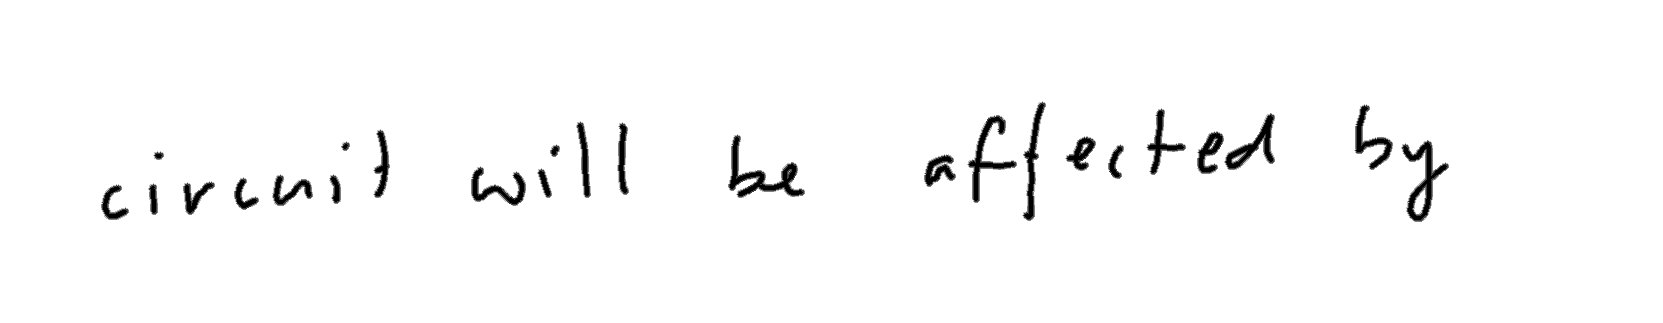 circuit will be affected by